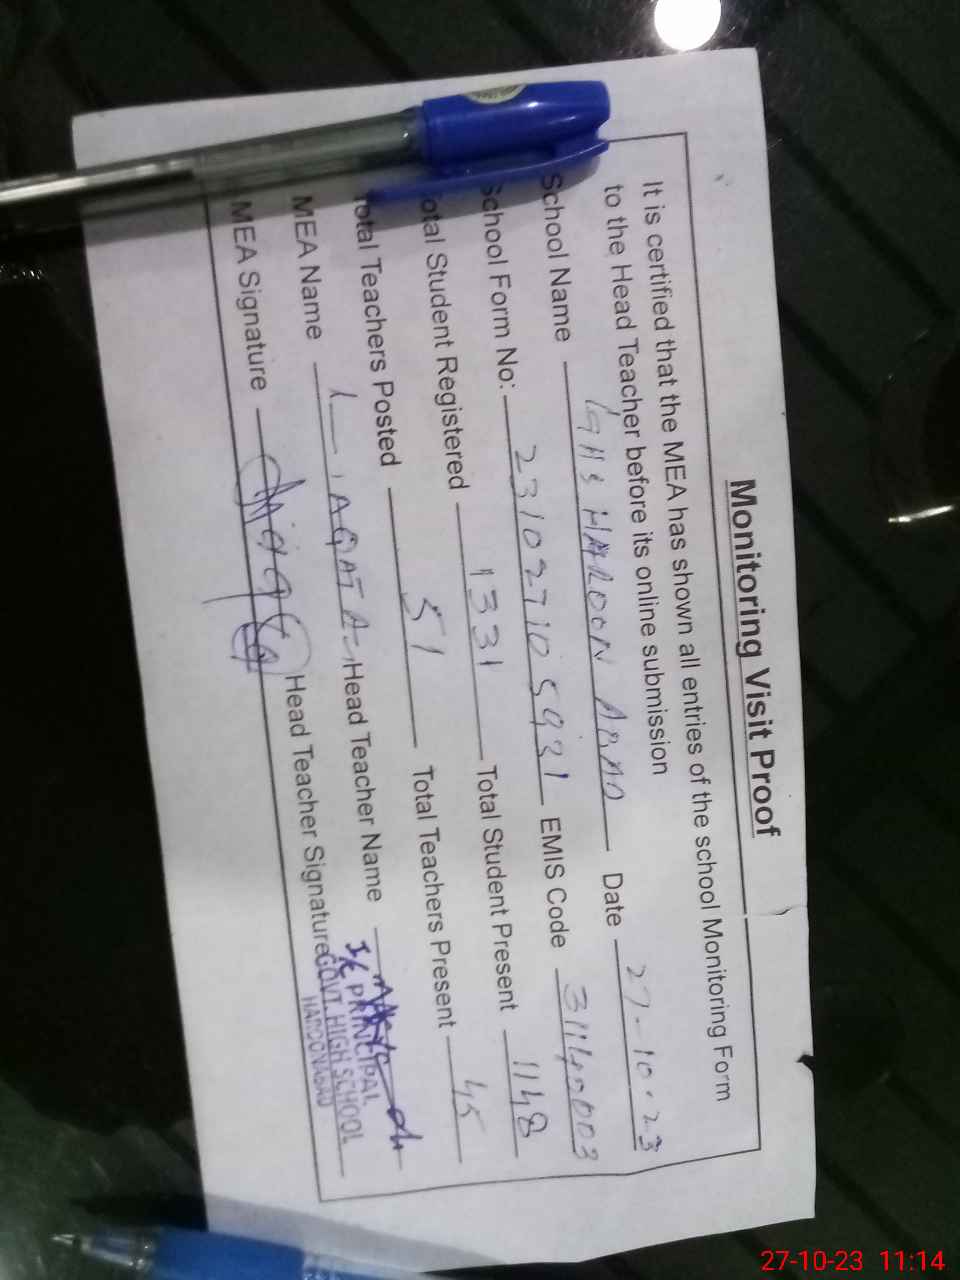 Monitoring Visit Proof
It is certified that the MEA has shown all entries of the school Monitoring Form
to the Head Teacher before its online submission
School Name GHS HAROON ABAD Date 27-10-23
School Form No: 231027105931 EMIS Code 31140003
Total Student Registered 1331 Total Student Present 1148
Total Teachers Posted 51 Total Teachers Present 45
MEA Name LIAQAT A- Head Teacher Name
MEA Signature Head Teacher Signature
I/C PRINCIPAL
GOVT. HIGH SCHOOL
HAROONABAD
27-10-23 11:14